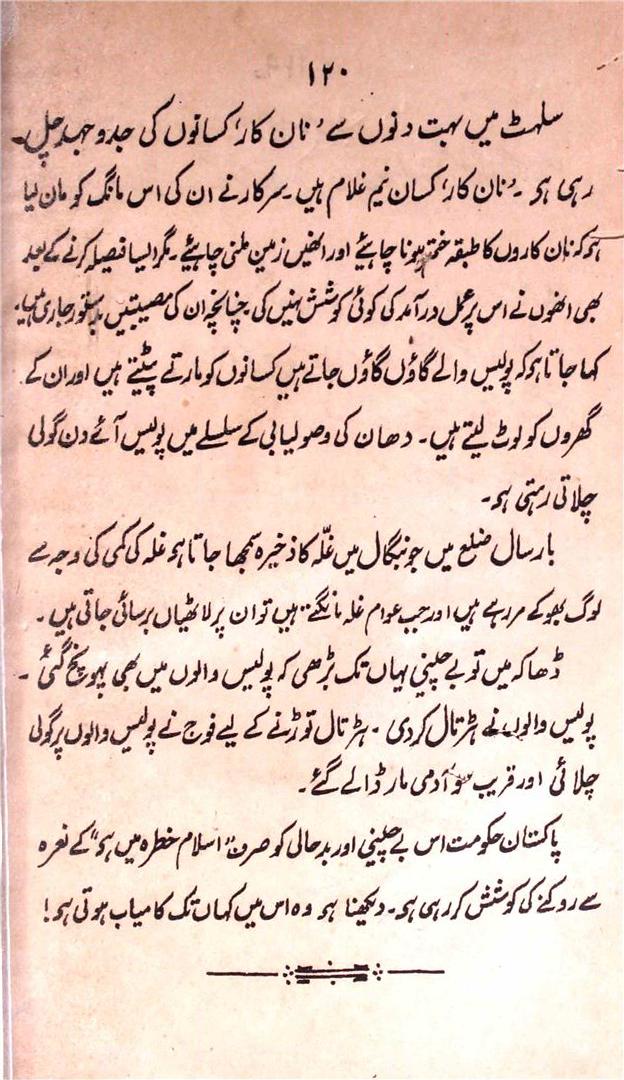 ۱۲۰
سلہٹ میں بہت دنوں سے 'نان کار' کسانوں کی جدوجہد چل
رہی ہو ۔ 'نان کار' کسان نیم غلام ہیں ۔ سرکار نے ان کی اس مانگ کو مان لیا
ہو کہ نان کاروں کا طبقہ ختم ہونا چاہئے اور انھیں زمین ملنی چاہئے ۔ مگر ایسا فیصلہ کرنے کے بعد
بھی انھوں نے اس پر عمل درآمد کی کوئی کوشش نہیں کی ۔ چنانچہ ان کی مصیبتیں بدستور جاری ہیں ۔
کہا جاتا ہو کہ پولیس والے گاؤں گاؤں جاتے ہیں کسانوں کو مارتے پیٹتے ہیں اور ان کے
گھروں کو لوٹ لیتے ہیں ۔ دھان کی وصولیابی کے سلسلے میں پولیس آئے دن گولی
چلاتی رہتی ہو ۔
بارسال ضلع میں جو بنگال میں غلّہ کا ذخیرہ سمجھا جاتا ہو غلہ کی کمی کی وجہ سے
لوگ بھوکے مر رہے ہیں اور جب عوام غلہ مانگتے ہیں تو ان پر لاٹھیاں برسائی جاتی ہیں ۔
ڈھاکہ میں تو بے چینی یہاں تک بڑھی کہ پولیس والوں میں بھی پہونچ گئی ۔
پولیس والوں نے ہڑتال کر دی ۔ ہڑتال توڑنے کے لیے فوج نے پولیس والوں پر گولی
چلائی اور قریب سو آدمی مار ڈالے گئے ۔
پاکستان حکومت اس بے چینی اور بدحالی کو صرف "اسلام خطرہ میں ہو" کے نعرہ
سے روکنے کی کوشش کر رہی ہو ۔ دیکھنا ہو وہ اس میں کہاں تک کامیاب ہوتی ہو !